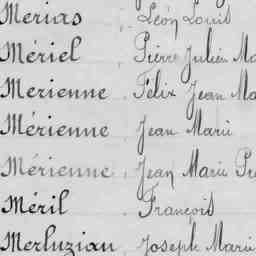 Merias, Léon Louis
Mériel, Pierre Julien Ma
Merienne, Félix Jean Ma
Mérienne, Jean Marie
Mérienne, Jean Marie Pre
Méril, François
Merluzian, Joseph Marie